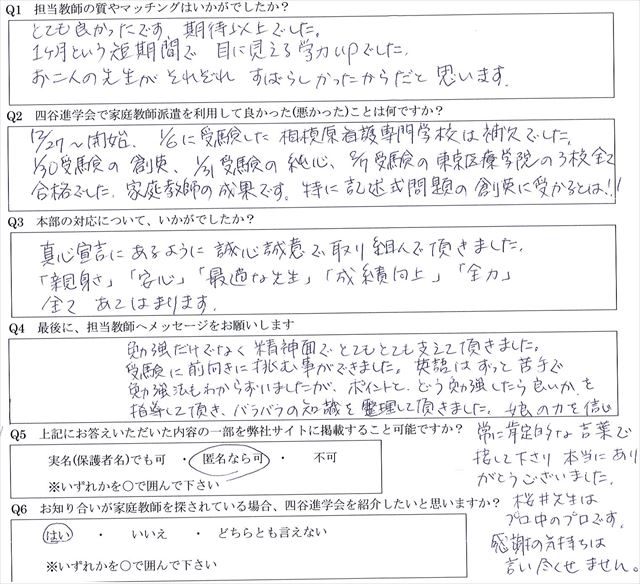 Q1　担当教師の質やマッチングはいかがでしたか？
とても良かったです。期待以上でした。
1ヶ月という短期間で 目に見える学力upでした。
お二人の先生が それぞれ すばらしかったからだと 思います。
Q2　四谷進学会で家庭教師派遣を利用して良かった(悪かった)ことは何ですか？
12/27〜開始、1/6に受験した 相模原看護専門学校は補欠でした。
1/30受験の 創英、1/31受験の 純心、2/1受験の東京医療学院の3校全て
合格でした。家庭教師の成果です。特に 記述式問題の 創英に受かるとは!!
Q3　本部の対応について、いかがでしたか？
真心宣言にあるように 誠心誠意で取り組んで頂きました。
「親身さ」「安心」「最適な先生」「成績向上」「全力」
全て あてはまります。
Q4　最後に、担当教師へメッセージをお願いします
勉強だけでなく 精神面で とてもとても支えて頂きました。
受験に前向きに挑む事ができました。英語は ずっと 苦手で
勉強法もわからずいましたが、ポイントと、どう勉強したら良いか、を
指導して頂き、バラバラの知識を整理して頂きました。娘の力を信じ
常に肯定的な言葉で
接して下さり 本当にあり
がとうございました。
桜井先生は
プロ中のプロです。
感謝の気持ちは
言い尽くせません。
Q5　上記にお答えいただいた内容の一部を弊社サイトに掲載すること可能ですか？
実名(保護者名)でも可　・　匿名なら可　・　不可
※いずれかを○で囲んで下さい
Q6　お知り合いが家庭教師を探されている場合、四谷進学会を紹介したいと思いますか？
はい　・　いいえ　・　どちらとも言えない
※いずれかを○で囲んで下さい